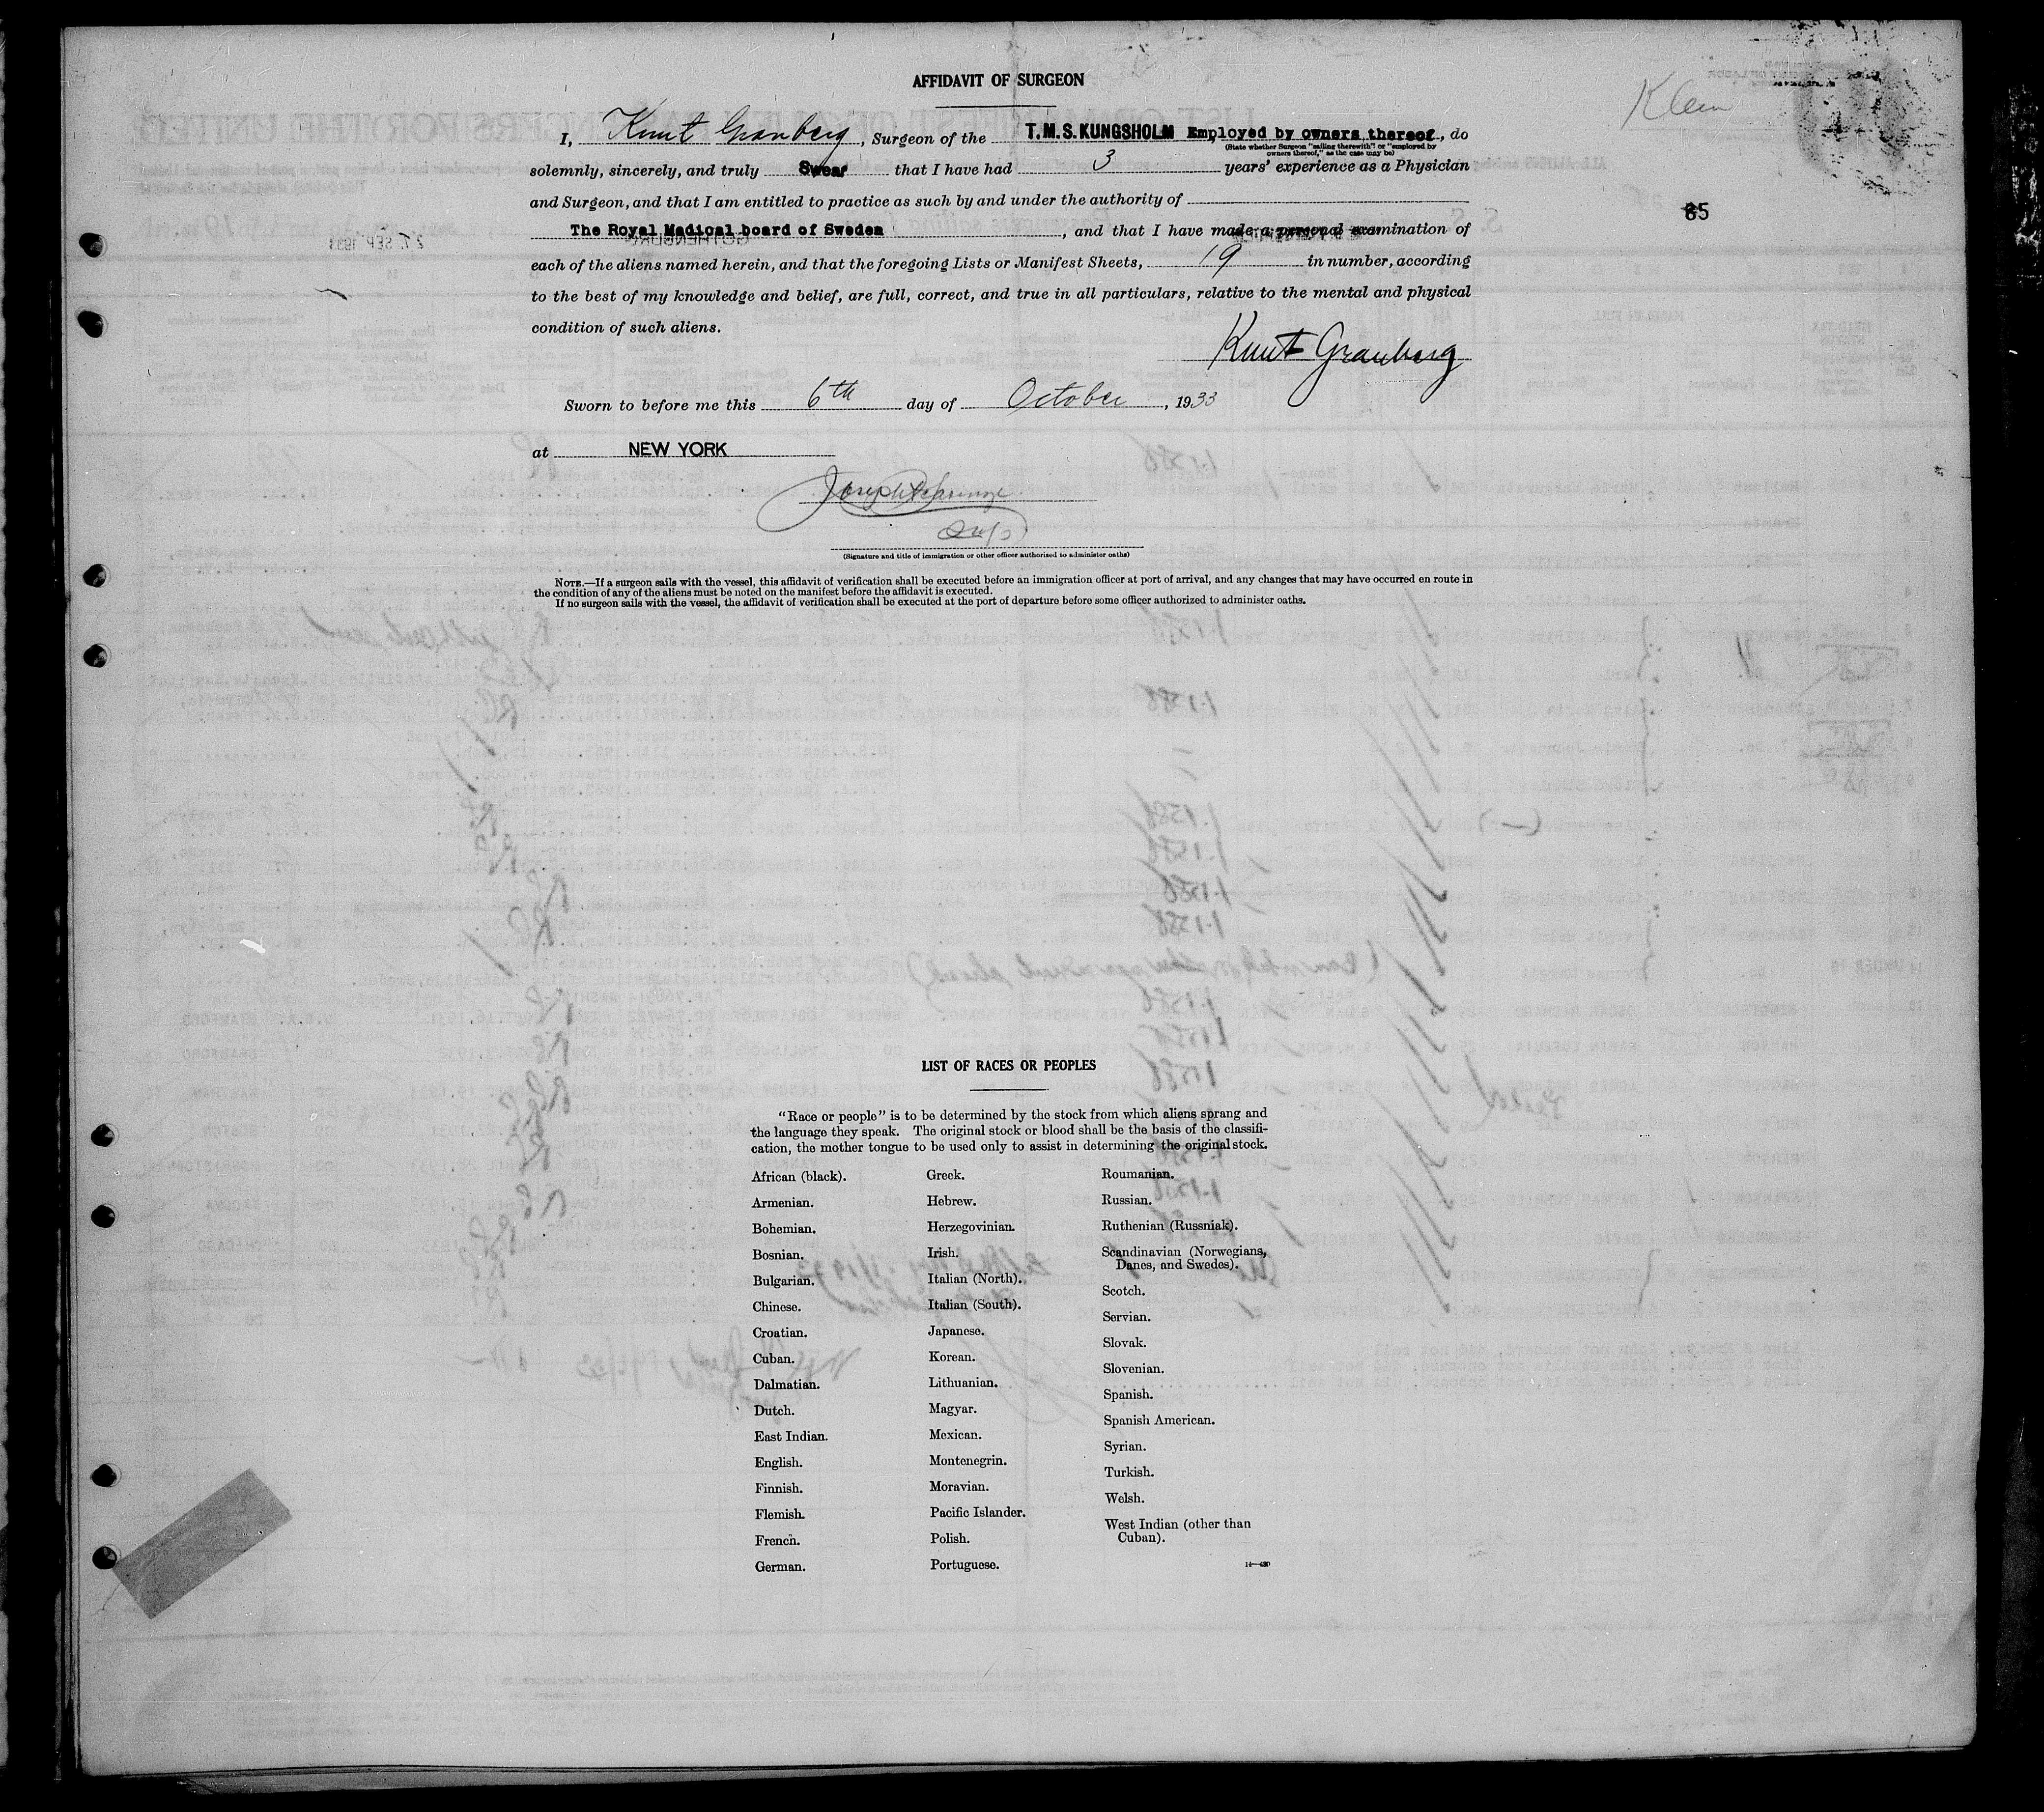 AFFIDAVIT OF SURGEON
Klein
I, Knut Granberg, Surgeon of the T.M.S. KUNGSHOLM Employed by owners thereof, do
(State whether Surgeon "sailing therewith" or "employed by
owners thereof," as the case may be)
solemnly, sincerely, and truly Swear that I have had 3 years' experience as a Physician
and Surgeon, and that I am entitled to practice as such by and under the authority of
85
The Royal Medical board of Sweden, and that I have made a personal examination of
each of the aliens named herein, and that the foregoing Lists or Manifest Sheets, 19 in number, according
to the best of my knowledge and belief, are full, correct, and true in all particulars, relative to the mental and physical
condition of such aliens.
Knut Granberg
Sworn to before me this 6th day of October, 1933
at NEW YORK
Joseph
(Signature and title of immigration or other officer authorized to administer oaths)
NOTE.—If a surgeon sails with the vessel, this affidavit of verification shall be executed before an immigration officer at port of arrival, and any changes that may have occurred en route in
the condition of any of the aliens must be noted on the manifest before the affidavit is executed.
If no surgeon sails with the vessel, the affidavit of verification shall be executed at the port of departure before some officer authorized to administer oaths.
LIST OF RACES OR PEOPLES
"Race or people" is to be determined by the stock from which aliens sprang and
the language they speak. The original stock or blood shall be the basis of the classifi-
cation, the mother tongue to be used only to assist in determining the original stock.
African (black).
Armenian.
Bohemian.
Bosnian.
Bulgarian.
Chinese.
Croatian.
Cuban.
Dalmatian.
Dutch.
East Indian.
English.
Finnish.
Flemish.
French.
German.
Greek.
Hebrew.
Herzegovinian.
Irish.
Italian (North).
Italian (South).
Japanese.
Korean.
Lithuanian.
Magyar.
Mexican.
Montenegrin.
Moravian.
Pacific Islander.
Polish.
Portuguese.
Roumanian.
Russian.
Ruthenian (Russniak).
Scandinavian (Norwegians,
Danes, and Swedes).
Scotch.
Servian.
Slovak.
Slovenian.
Spanish.
Spanish American.
Syrian.
Turkish.
Welsh.
West Indian (other than
Cuban).